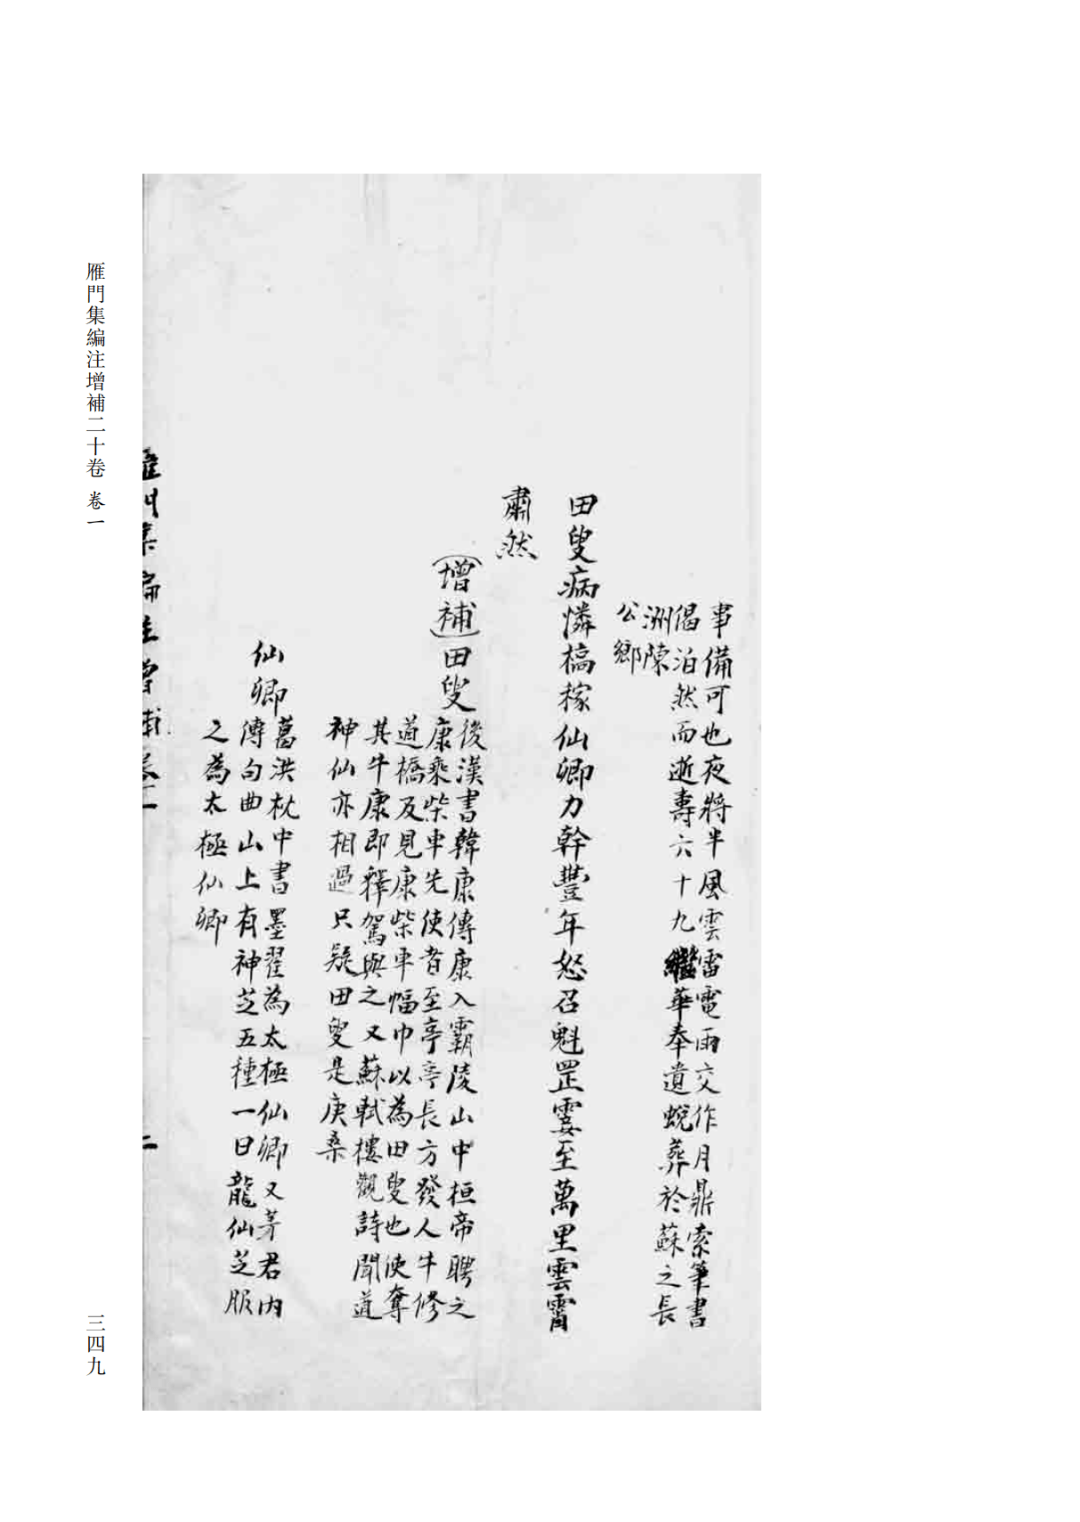 事備可也夜將半風雲雷電雨交作月鼎索筆書
偈泊然而逝壽六十九繼華奉遺蛻葬於蘇之長
洲陳
公鄉
田叟病憐槁稼仙卿力幹豐年怒召魁罡霎至萬里雲霄
肅然
增補
田叟
後漢書韓康傳康入霸陵山中桓帝聘之
康乘柴車先使者至亭亭長方發人牛修
道橋及見康柴車幅巾以為田叟也使奪
其牛康即釋駕與之又蘇軾樓觀詩聞道
神仙亦相過只疑田叟是庚桑
仙卿
葛洪枕中書墨翟為太極仙卿又茅君內
傳句曲山上有神芝五種一曰龍仙芝服
之為太極仙卿
雁門集編注增補卷一
二
雁門集編注增補二十卷 卷一
三四九